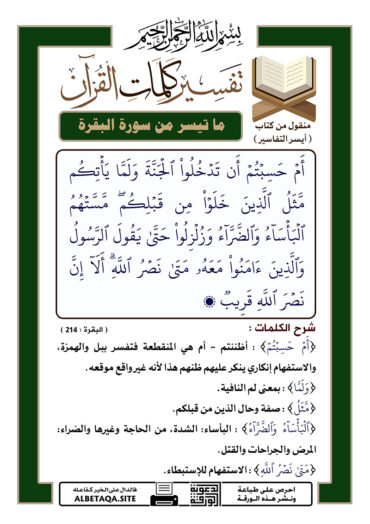 بسم الله الرحمن الرحيم
تفسير كلمات القرآن
ما تيسر من سورة البقرة
منقول من كتاب
( أيسر التفاسير )
أَمْ حَسِبْتُمْ أَن تَدْخُلُوا۟ ٱلْجَنَّةَ وَلَمَّا يَأْتِكُم
مَّثَلُ ٱلَّذِينَ خَلَوْا۟ مِن قَبْلِكُم ۖ مَّسَّتْهُمُ
ٱلْبَأْسَآءُ وَٱلضَّرَّآءُ وَزُلْزِلُوا۟ حَتَّىٰ يَقُولَ ٱلرَّسُولُ
وَٱلَّذِينَ ءَامَنُوا۟ مَعَهُۥ مَتَىٰ نَصْرُ ٱللَّهِ ۗ أَلَآ إِنَّ
نَصْرَ ٱللَّهِ قَرِيبٌ
شرح الكلمات :
( البقرة : 214 )
﴿أَمْ حَسِبْتُمْ﴾ : أظننتم - أم هي المنقطعة فتفسر ببل والهمزة،
والاستفهام إنكاري ينكر عليهم ظنهم هذا لأنه غير واقع موقعه .
﴿وَلَمَّا﴾ : بمعنى لم النافية .
﴿مَّثَلُ﴾ : صفة وحال الذين من قبلكم .
﴿ٱلْبَأْسَآءُ وَٱلضَّرَّآءُ﴾ : البأساء: الشدة، من الحاجة وغيرها والضراء:
المرض والجراحات والقتل .
﴿مَتَىٰ نَصْرُ ٱللَّهِ﴾ : الاستفهام للإستبطاء .
احرص على طباعة
ونشر هذه الورقة
فالدال على الخير كفاعله
ALBETAQA.SITE